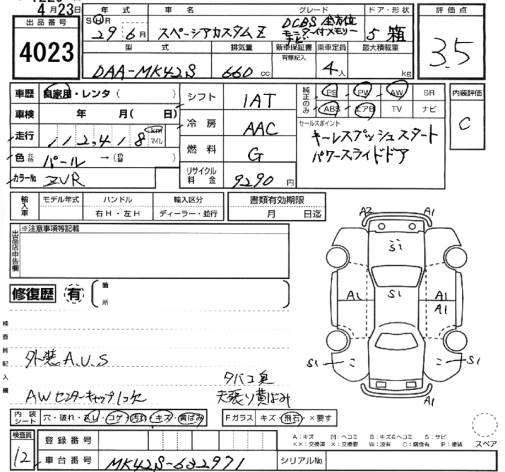 4月23日
出品番号
4023
年式
車名
グレード
ドア・形状
評価点
S H R
29年6月
スペーシアカスタムZ
DCBS 全方位
モニター付メモリー
ナビ
5 箱
3.5
型式
排気量
新車保証書
有無記入
乗車定員
最大積載量
DAA-MK42S
660cc
4人
kg
車歴
自家用・レンタ( )
車検
年 月( 日)
走行
112,418 km マイル
色
パール→( )
カラーNo
ZVR
シフト
1AT
冷房
AAC
燃料
G
リサイクル料金
9290円
純正のみ
PS PW AW SR
ABS エアB TV ナビ
セールスポイント
キーレスプッシュスタート
パワースライドドア
内装評価
C
輸入車
モデル年式
ハンドル
右H・左H
輸入区分
ディーラー・並行
書類有効期限
月 日迄
出品店申告欄
※注意事項等記載
修復歴
有
箇所
検査員記入欄
外装A.U.S
AWセンターキャップ1ヶ欠
タバコ臭
天張り黄ばみ
A2
A1
S1
A1
A1
S1
A1
S1
S1
A1
内装シート
穴・破れ・スレ・コゲ・汚れ・キズ・黄ばみ
Fガラス
キズ・飛石・×要す
検査員
12
登録番号
車台番号
MK42S-682971
シリアルNo
A:キズ H:ヘコミ B:キズ&ヘコミ S:サビ
××:交換済 X:交換要 W:波有 C:腐食有 P:塗装
スペア